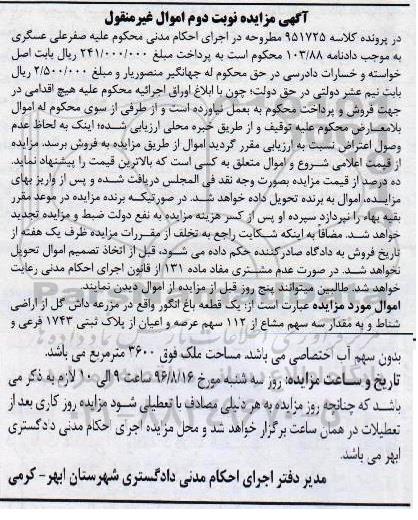 آگهی مزایده نوبت دوم اموال غیرمنقول
در پرونده کلاسه ۹۵۱۷۲۵ مطروحه در اجرای احکام مدنی محکوم علیه صفرعلی عسگری
به موجب دادنامه ۱۰۳/۸۸ محکوم است به پرداخت مبلغ ۲۴۱/۰۰۰/۰۰۰ ریال بابت اصل
خواسته و خسارات دادرسی در حق محکوم له جهانگیر منصوریار و مبلغ ۲/۵۰۰/۰۰۰ ریال
بابت نیم عشر دولتی در حق دولت؛ چون با ابلاغ اوراق اجرائیه محکوم علیه هیچ اقدامی در
جهت فروش و پرداخت محکوم به بعمل نیاورده است و از طرفی از سوی محکوم له اموال
بلامعارض محکوم علیه توقیف و از طریق خبره محلی ارزیابی شده؛ اینک به لحاظ عدم
وصول اعتراض نسبت به ارزیابی مقرر گردید اموال از طریق مزایده به فروش برسد. مزایده
از قیمت اعلامی شروع و اموال متعلق به کسی است که بالاترین قیمت را پیشنهاد نماید.
ده درصد از قیمت مزایده بصورت وجه نقد فی المجلس دریافت شده و پس از واریز بهای
مزایده، اموال به برنده تحویل داده خواهد شد. در صورتیکه برنده مزایده در موعد مقرر
بقیه بهاء را نپردازد سپرده او پس از کسر هزینه مزایده به نفع دولت ضبط و مزایده تجدید
خواهد شد. مضافاً به اینکه شکایت راجع به تخلف از مقررات مزایده ظرف یک هفته از
تاریخ فروش به دادگاه صادرکننده حکم داده می شود، قبل از اتخاذ تصمیم اموال تحویل
نخواهد شد. در صورت عدم مشتری مفاد ماده ۱۳۱ از قانون اجرای احکام مدنی رعایت
خواهد شد. طالبین میتوانند پنج روز قبل از مزایده از اموال دیدن نمایند.
اموال مورد مزایده عبارت است از: یک قطعه باغ انگور واقع در مزرعه داش گل از اراضی
شناط و به مقدار سه سهم مشاع از ۱۱۲ سهم عرصه و اعیان از پلاک ثبتی ۱۷۴۳ فرعی و
بدون سهم آب اختصاصی می باشد. مساحت ملک فوق ۳۶۰۰ مترمربع می باشد.
تاریخ و ساعت مزایده: روز سه شنبه مورخ ۹۶/۸/۱۶ ساعت ۹ الی ۱۰ لازم به ذکر می
باشد که چنانچه روز مزایده به هر دلیلی مصادف با تعطیلی شود مزایده روز کاری بعد از
تعطیلات در همان ساعت برگزار خواهد شد و محل مزیده اجرای احکام مدنی دادگستری
ابهر می باشد.
مدیر دفتر اجرای احکام مدنی دادگستری شهرستان ابهر- کرمی